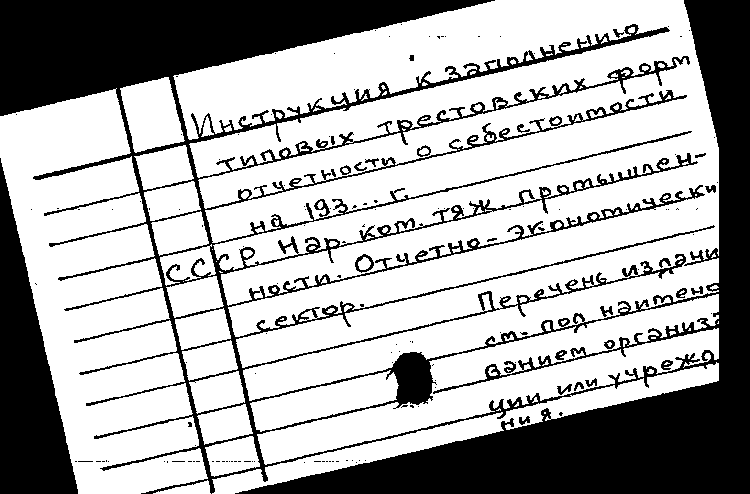 Инструкция к заполнению
типовых трестовских форм
отчетности о себестоимости
на 193... г.
СССР. Нар. ком. тяж. промышлен-
ности. Отчетно-экономически
сектор.
Перечень издани
см. под наимено
ванием организа
ции или учрежд
ния.